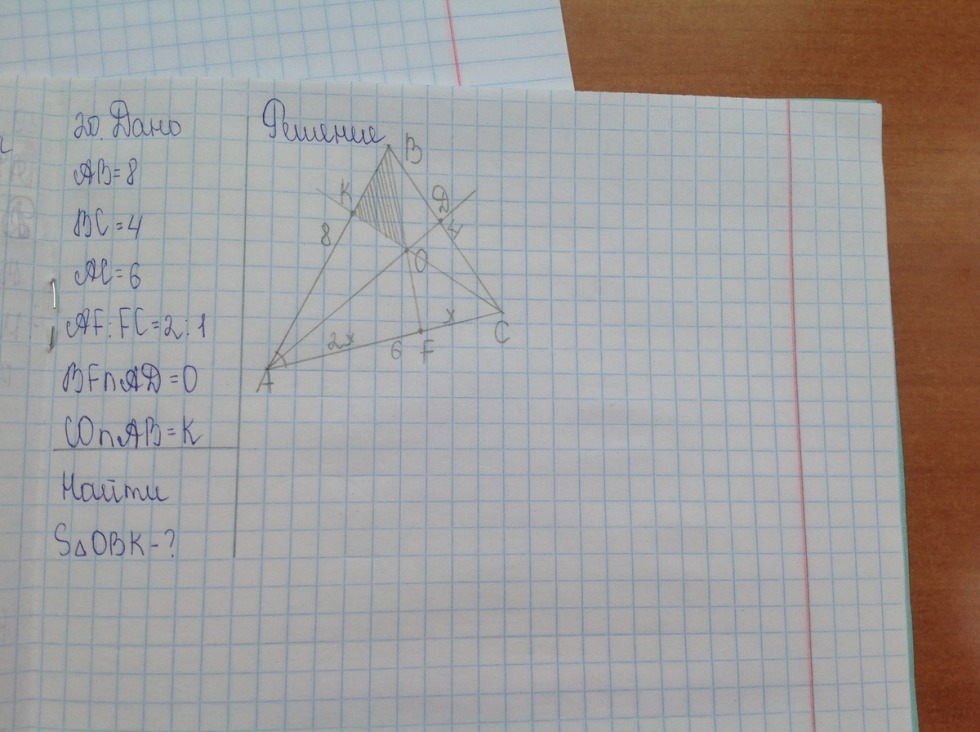 20. Дано
AB=8
BC=4
AC=6
AF:FC=2:1
BF∩AD=O
CO∩AB=K
Найти
S△OBK-?
Решение
B
K
D
8
4
O
x
C
2x
6
F
A